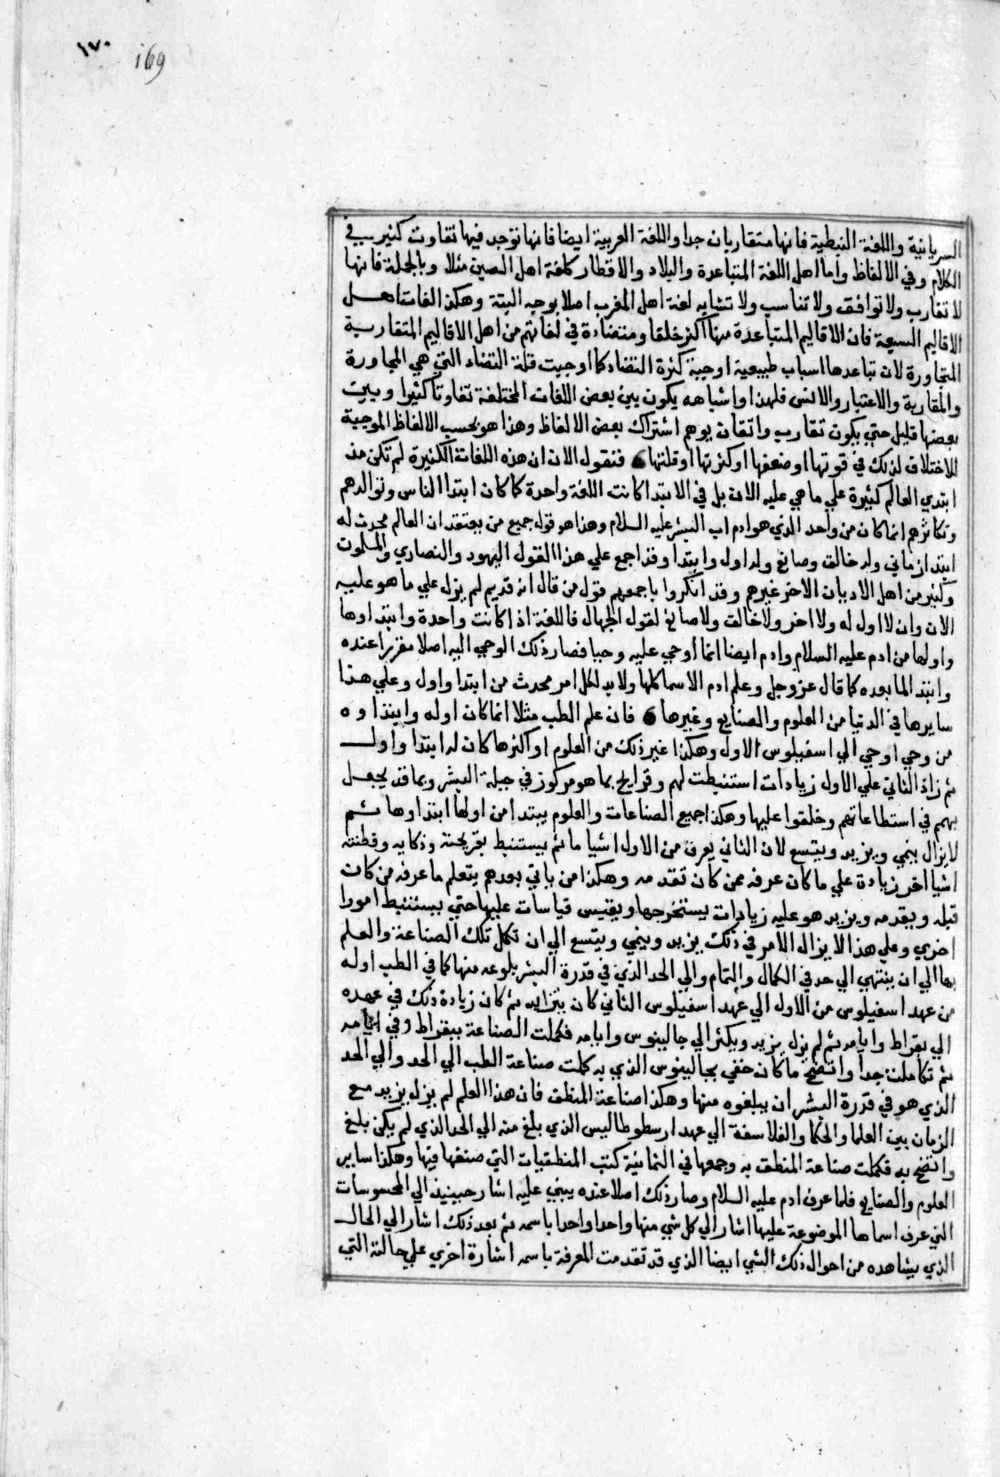 ١٧٠
169
السريانية واللغة النبطية فانها متقاربان جدا واللغة العربية ايضا فانها توجد فيها تفاوت كثير في
الكلام وفي الالفاظ واما اهل اللغة المتباعدة والبلاد والاقطار كلغة اهل الصين مثلا وبالجملة فانها
لا تقارب ولا توافق ولا تناسب ولا تشابه لغة اهل المغرب اصلا بوجه البتة وهكذا لغات اهل
الاقاليم السبعة فان الاقاليم المتباعدة منها اكثر خلفا ومتضادة في لغاتهم من اهل الاقاليم المتقاربة
المتجاورة لان تباعدها اسباب طبيعية اوجبة كثرة التضاد كما اوجبت قلة التضاد التي هي المجاورة
والمقاربة والاعتبار والانس فلهذا واشباهه يكون بين بعض اللغات المختلفة تفاوتا كثيرا وبين
بعضها قليل حتي يكون تقارب واتفاق يوهم اشتراك بعض الالفاظ وهذا هو بحسب الالفاظ الموجبة
للاختلاف لذلك في قوتها او ضعفها او كثرتها او قلتها فنقول الان ان هذه اللغات الكثيرة لم تكن منذ
ابتدي العالم كثيرة علي ما هي عليه الان بل في الابتدا كانت اللغة واحدة كما كان ابتدا الناس وتوالدهم
وتكاثرهم انما كان من واحد الذي هو ادم اب البشر عليه السلام وهذا هو قول جميع من يعتقد ان العالم محدث له
ابتدا زماني وله خالق وصانع وله اول وابتدا وقد اجمع علي هذا القول اليهود والنصاري والمسلمون
وكثير من اهل الاديان الاخر غيرهم وقد انكروا باجمعهم قول من قال انه قديم لم يزل علي ما هو عليه
الان وان لا اول له ولا اخر ولا خالق ولا صانع لقول الجهال فاللغة اذا كانت واحدة وابتداوها
واولها من ادم عليه السلام وادم ايضا انما اوحي عليه وحيا فصار ذلك الوحي اليه اصلا مقررا عنده
وابتدا لما بعده كما قال عز وجل وعلم ادم الاسما كلها ولا بد لكل امر محدث من ابتدا واول وعلي هذا
سايرها في الدنيا من العلوم والصنايع وغيرها فان علم الطب مثلا انما كان اوله وابتداوه
من وحي اوحي الي اسقيلوس الاول وهكذا غير ذلك من العلوم او اكثرها كان له ابتدا واول
ثم زاد الثاني علي الاول زيادات استنبطت لهم وقرايح بما هو مركوز في جبلة البشر وبما قد يجعل
بهم في استطاعاتهم وخلقوا عليها وهكذا جميع الصناعات والعلوم يبتدا من اولها ابتداوها ثم
لا يزال ينمي ويزيد ويتسع لان الثاني يعرف من الاول اشيا ما ثم يستنبط بقريحته وذكايه وفطنته
اشيا اخر زيادة علي ما كان عرفه ممن كان تقدمه وهكذا من ياتي بعدهم يتعلم ما عرفه من كان
قبله وبقدمه ويزيد هو عليه زيادات يستخرجها ويقيس قياسات عليها حتي يستنبط امورا
اخري وعلي هذا لا يزال الامر في ذلك يزيد وينمي ويتسع الي ان تكمل تلك الصناعة والعلم
بها الي ان ينتهي الي حد في الكمال والتمام والي الحد الذي في قدرة البشر بلوغه منها كما في الطب اوله
من عهد اسقيلوس من الاول الي عهد اسقيلوس الثاني كان يتزايد ثم كان زيادة ذلك في عهده
الي بقراط وايامه ثم لم يزل يزيد ويكثر الي جالينوس وايامه فكملت الصناعة ببقراط وفي ايامه
ثم تكاملت جدا واتضح ما كان خفي بجالينوس الذي به كملت صناعة الطب الي الحد والي الحد
الذي هو في قدرة البشر ان يبلغوه منها وهكذا صناعة المنطق فان هذا العلم لم يزل يزيد مع
الزمان بين العلما والحكما والفلاسفة الي عهد ارسطوطاليس الذي بلغ منه الي الحد الذي لم يكن بلغ
واتضح به فكملت صناعة المنطق به وجمعها في الثمانية كتب المنطقيات التي صنفها فيها وهكذا ساير
العلوم والصنايع فلما عرف ادم عليه السلام وصار ذلك اصلا عنده يبني عليه اشار حينيذ الي المحسوسات
التي عرف اسماها الموضوعة عليها اشار الي كل شي منها واحدا واحدا باسمه ثم بعد ذلك اشار الي الحال
الذي يشاهده من احوال ذلك الشي ايضا الذي قد تقدمت المعرفة باسمه اشارة اخري علي حالته التي